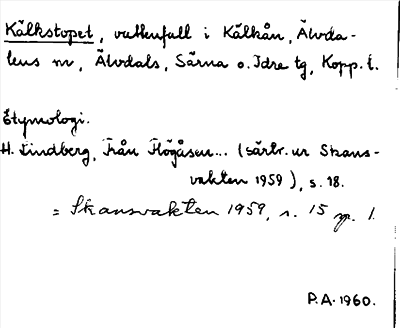 Kälkstopet, vattenfall i Kälkån, Älvda-
lens sn, Älvdals, Särna o. Idre tg, Kopp. l.
Etymologi.
H. Lindberg, Från Högåsen... (särtr. ur Skans-
vakten 1959), s. 18.
= Skansvakten 1959, s. 15 sp. 1.
P.A. 1960.